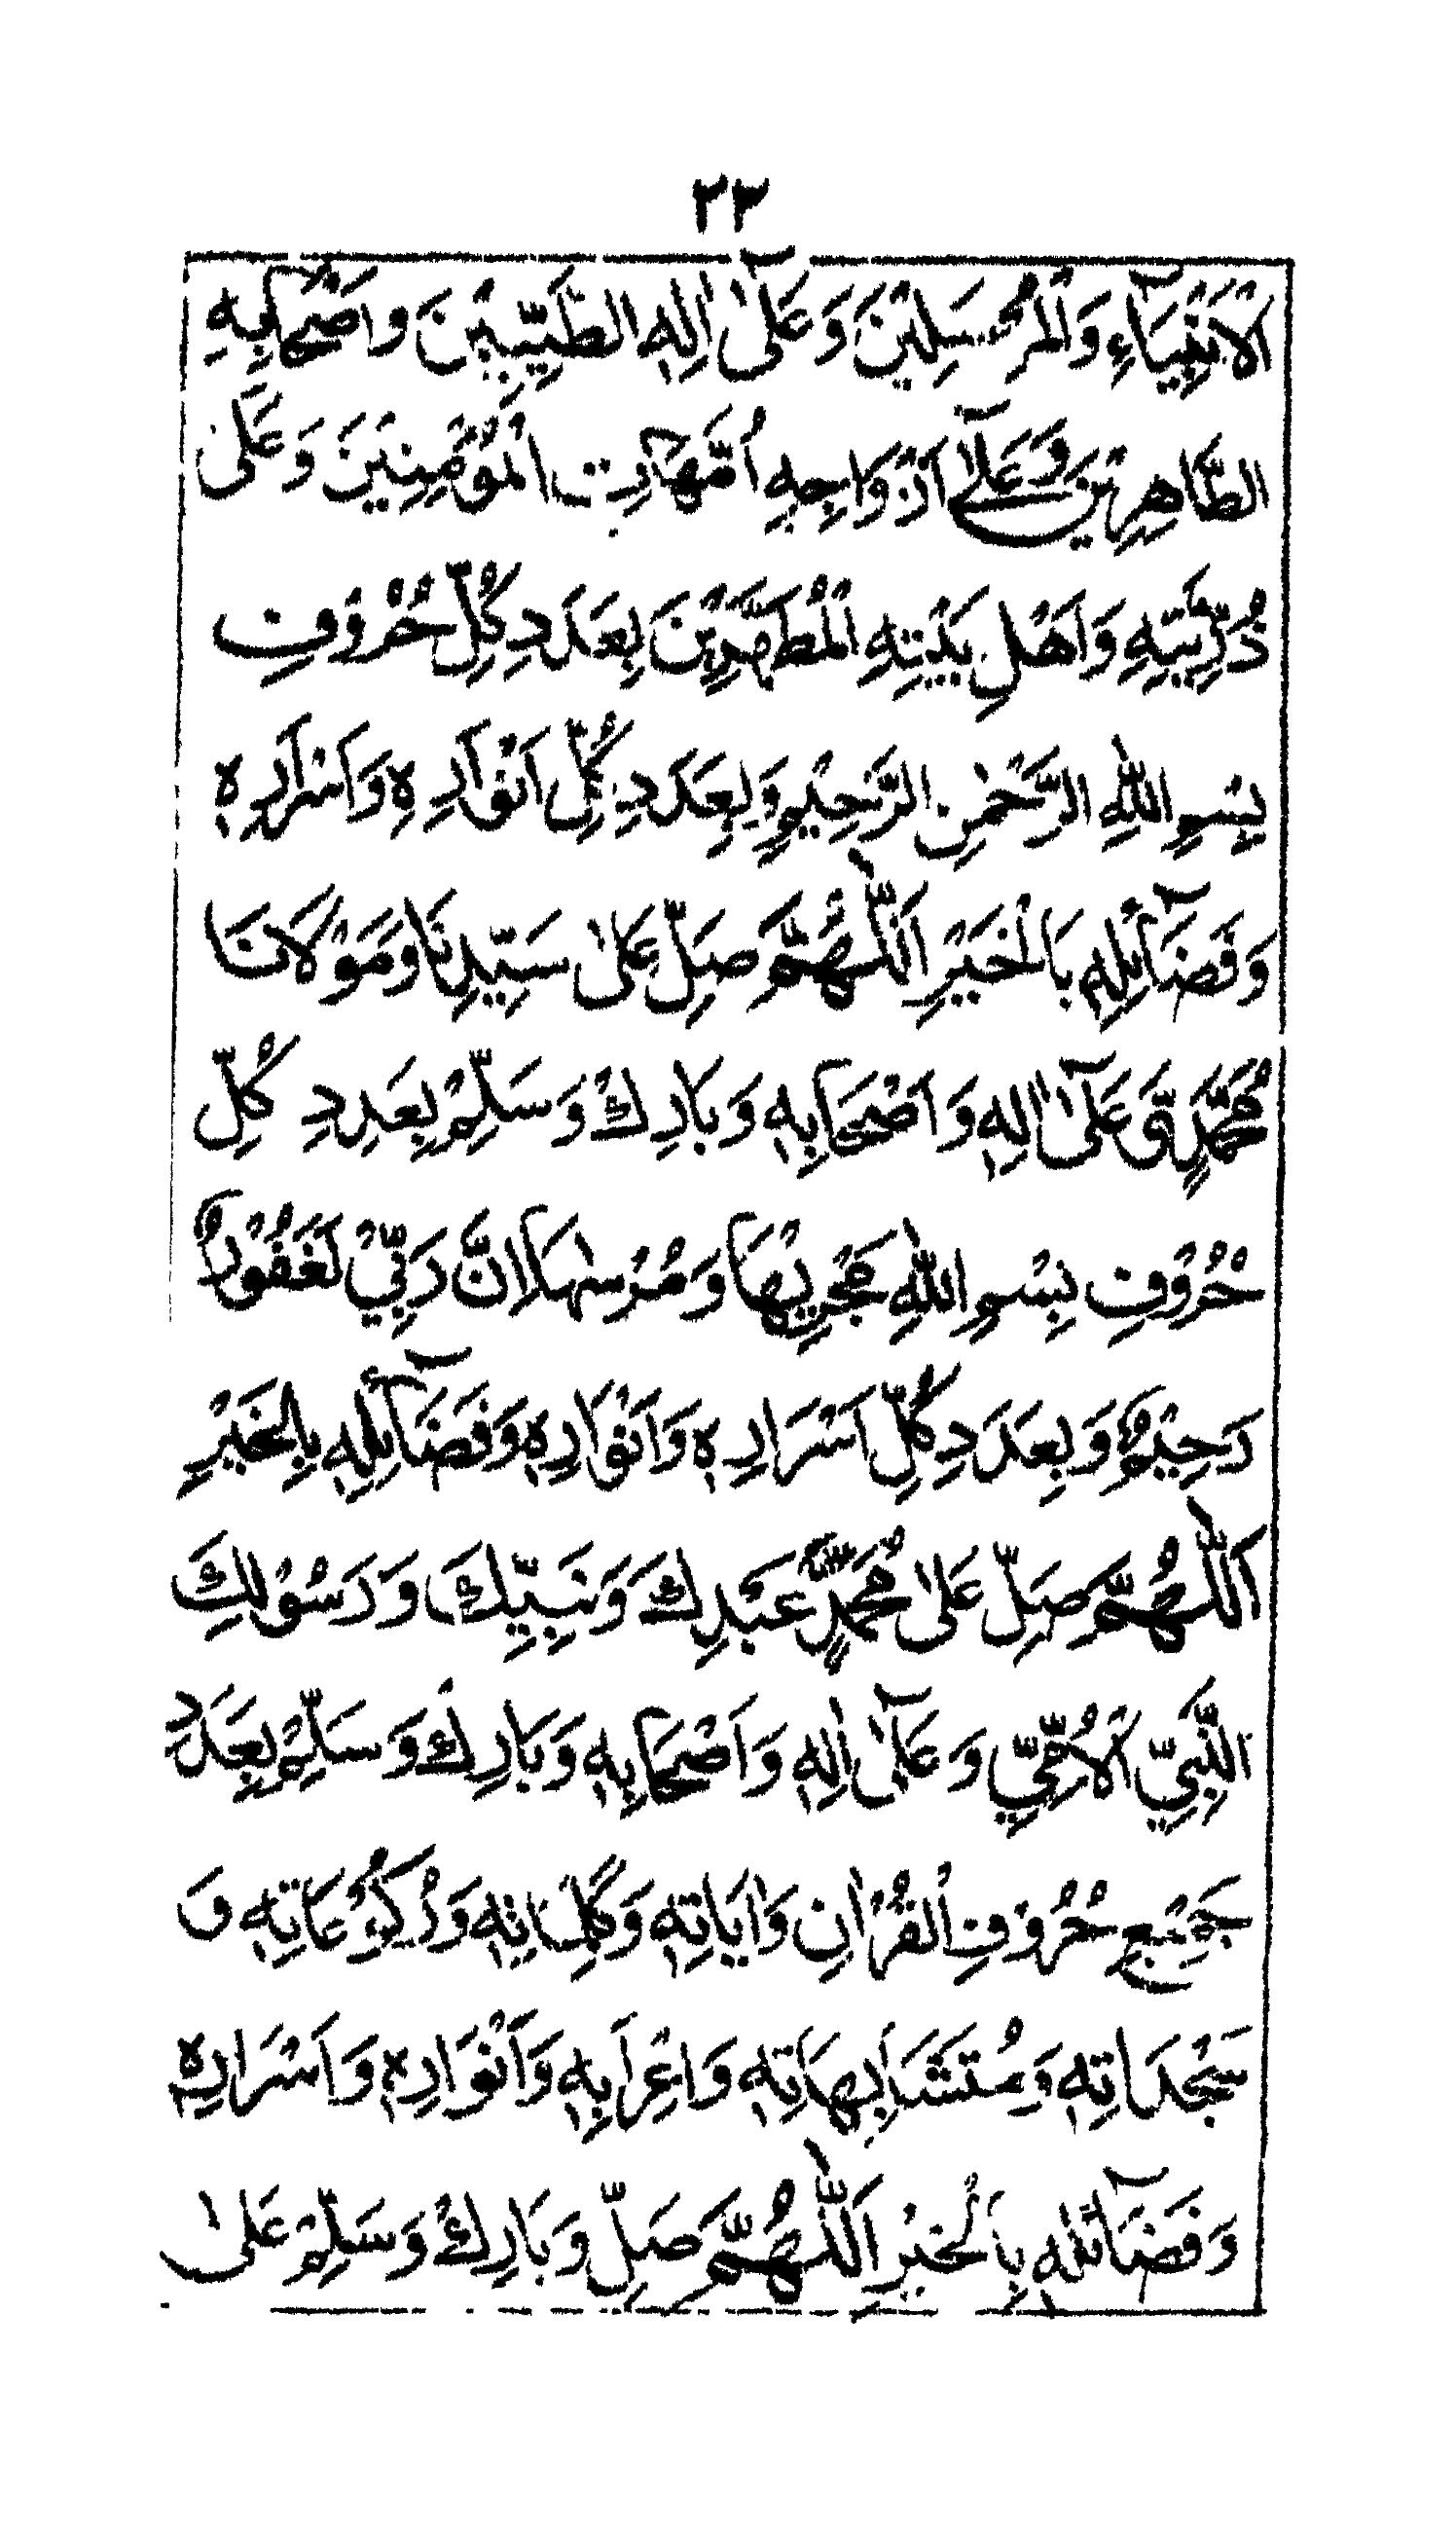 ٢٣
الْاَنْبِيَآءِ وَالْمُرْسَلِيْنَ وَعَلٰٓى اٰلِهِ الطَّيِّبِيْنَ وَاَصْحَابِهِ
الطَّاهِرِيْنَ وَعَلٰٓى اَزْوَاجِهِ اُمَّهَاتِ الْمُؤْمِنِيْنَ وَعَلٰى
ذُرِّيَّتِهِ وَاَهْلِ بَيْتِهِ الْمُطَهَّرِيْنَ بِعَدَدِ كُلِّ حُرُوْفِ
بِسْمِ اللّٰهِ الرَّحْمٰنِ الرَّحِيْمِ وَبِعَدَدِ كُلِّ اَنْوَارِهٖ وَاَسْرَارِهٖ
وَفَضَآئِلِهٖ بِالْخَيْرِ اَللّٰهُمَّ صَلِّ عَلٰى سَيِّدِنَا وَمَوْلَانَا
مُحَمَّدٍ وَّعَلٰٓى اٰلِهٖ وَاَصْحَابِهٖ وَبَارِكْ وَسَلِّمْ بِعَدَدِ كُلِّ
حُرُوْفِ بِسْمِ اللّٰهِ مَجْرٖىهَا وَمُرْسٰهَا اِنَّ رَبِّيْ لَغَفُوْرٌ
رَحِيْمٌ وَبِعَدَدِ كُلِّ اَسْرَارِهٖ وَاَنْوَارِهٖ وَفَضَآئِلِهٖ بِالْخَيْرِ
اَللّٰهُمَّ صَلِّ عَلٰى مُحَمَّدٍ عَبْدِكَ وَنَبِيِّكَ وَرَسُوْلِكَ
النَّبِيِّ الْاُمِّيِّ وَعَلٰٓى اٰلِهٖ وَاَصْحَابِهٖ وَبَارِكْ وَسَلِّمْ بِعَدَدِ
جَمِيْعِ حُرُوْفِ الْقُرْاٰنِ وَاٰيَاتِهٖ وَكَلِمَاتِهٖ وَرُكُوْعَاتِهٖ وَ
سَجْدَاتِهٖ وَمُتَشَابِهَاتِهٖ وَاِعْرَابِهٖ وَاَنْوَارِهٖ وَاَسْرَارِهٖ
وَفَضَآئِلِهٖ بِالْخَيْرِ اَللّٰهُمَّ صَلِّ وَبَارِكْ وَسَلِّمْ عَلٰى